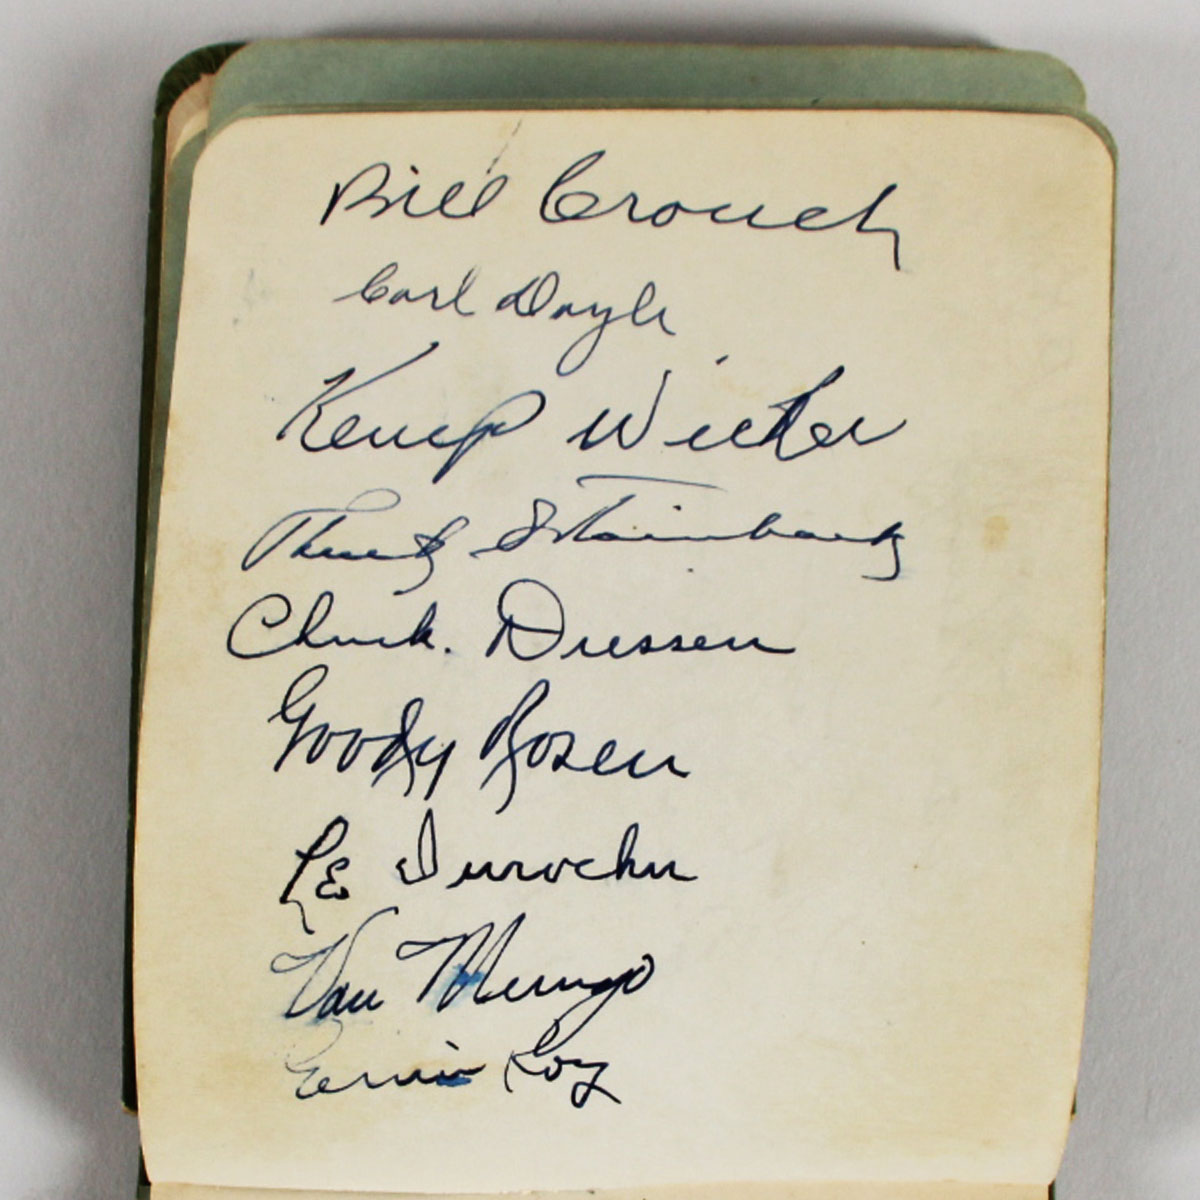 Bill Crouch
Carl Doyle
Kemp Wicker
Steinback
Chuck. Dressen
Goody Rosen
LE Durocher
Van Mungo
Ernie Koy